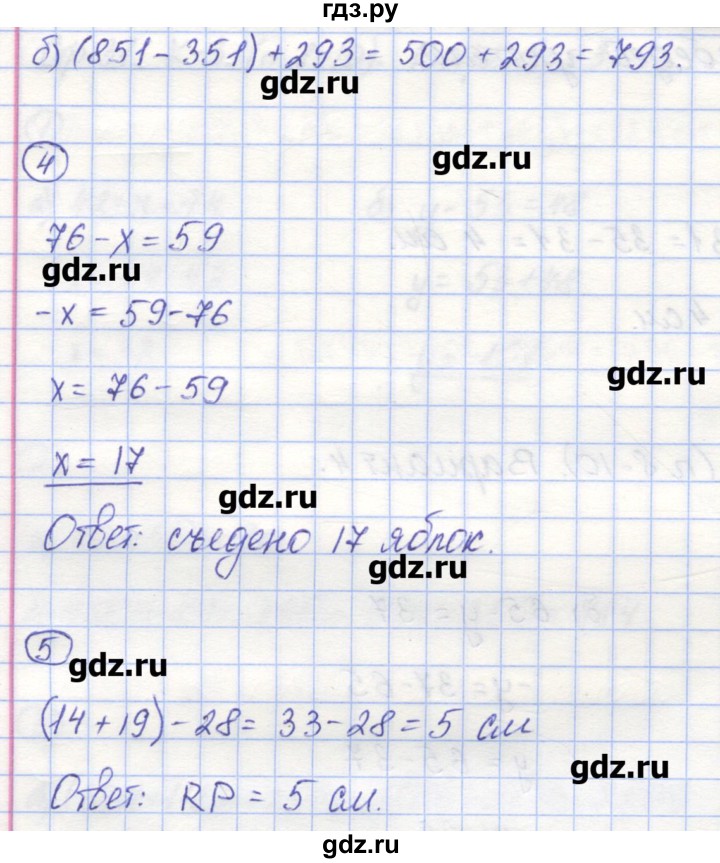 гдз.ру
б) (851 - 351) + 293 = 500 + 293 = 793.
gdz.ru
4
gdz.ru
76 - x = 59
gdz.ru
- x = 59 - 76
gdz.ru
x = 76 - 59
x = 17
gdz.ru
Ответ: съедено 17 яблок.
gdz.ru
5
gdz.ru
(14 + 19) - 28 = 33 - 28 = 5 см
gdz.ru
Ответ: RP = 5 см.
gdz.ru